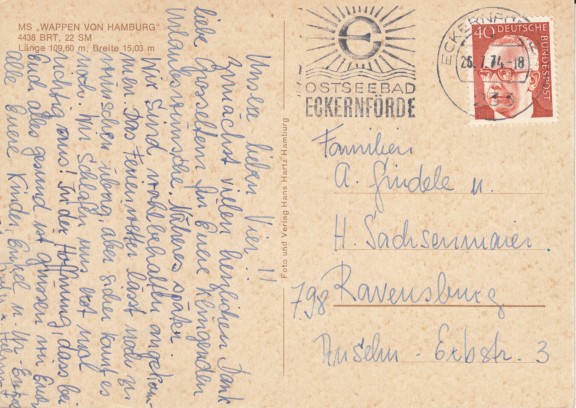 MS „WAPPEN VON HAMBURG“
4438 BRT, 22 SM
Länge 109,60 m, Breite 15,03 m
Unsere lieben Vier!!
Zunächst vielen herzlichen Dank
liebe
für Euere klingenden
Urlaubswünsche. Näheres später.
Wir sind wohlbehalten angekom-
men. Das Ferienwetter lässt noch zu
wünschen übrig, aber sicher kommt es
noch. Wir schlafen uns erst mal
richtig aus! In der Hoffnung, dass bei
Euch alles gesund ist grüssen wir Euch
alle Euere Kinder, Enkel u. Ur-Enkel
Foto und Verlag Hans Hartz Hamburg
OSTSEEBAD
ECKERNFÖRDE
ECKERNFÖRDE
25.7.74-18
40 DEUTSCHE
BUNDESPOST
Familien
A. Gindele u.
H. Sachsenmaier
798 Ravensburg
Anselm-Erbstr. 3